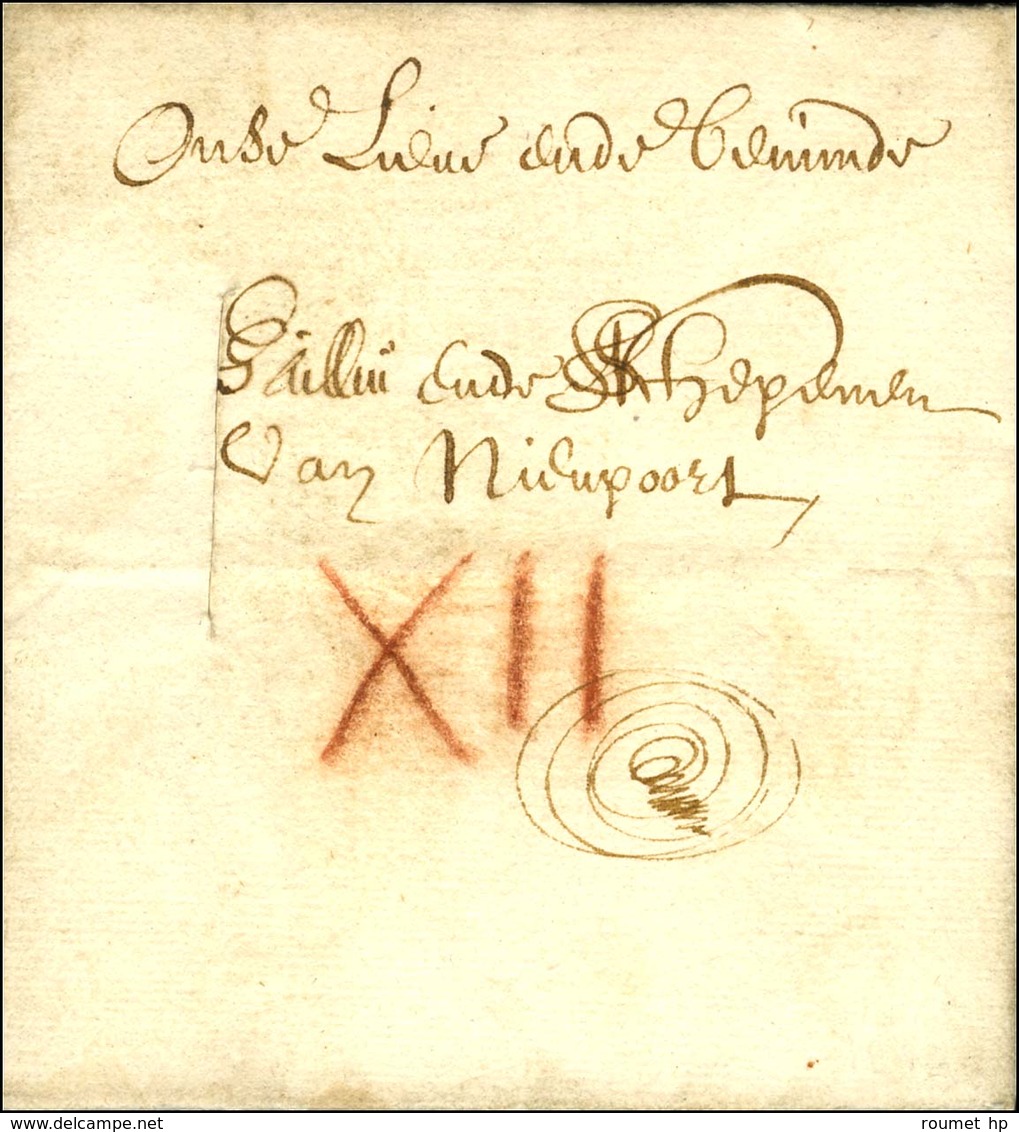 Onse Lieue ende beminde
Bailliu ende Schepenen
Van Nieupoort
XII
www.delcampe.net
roumet hp